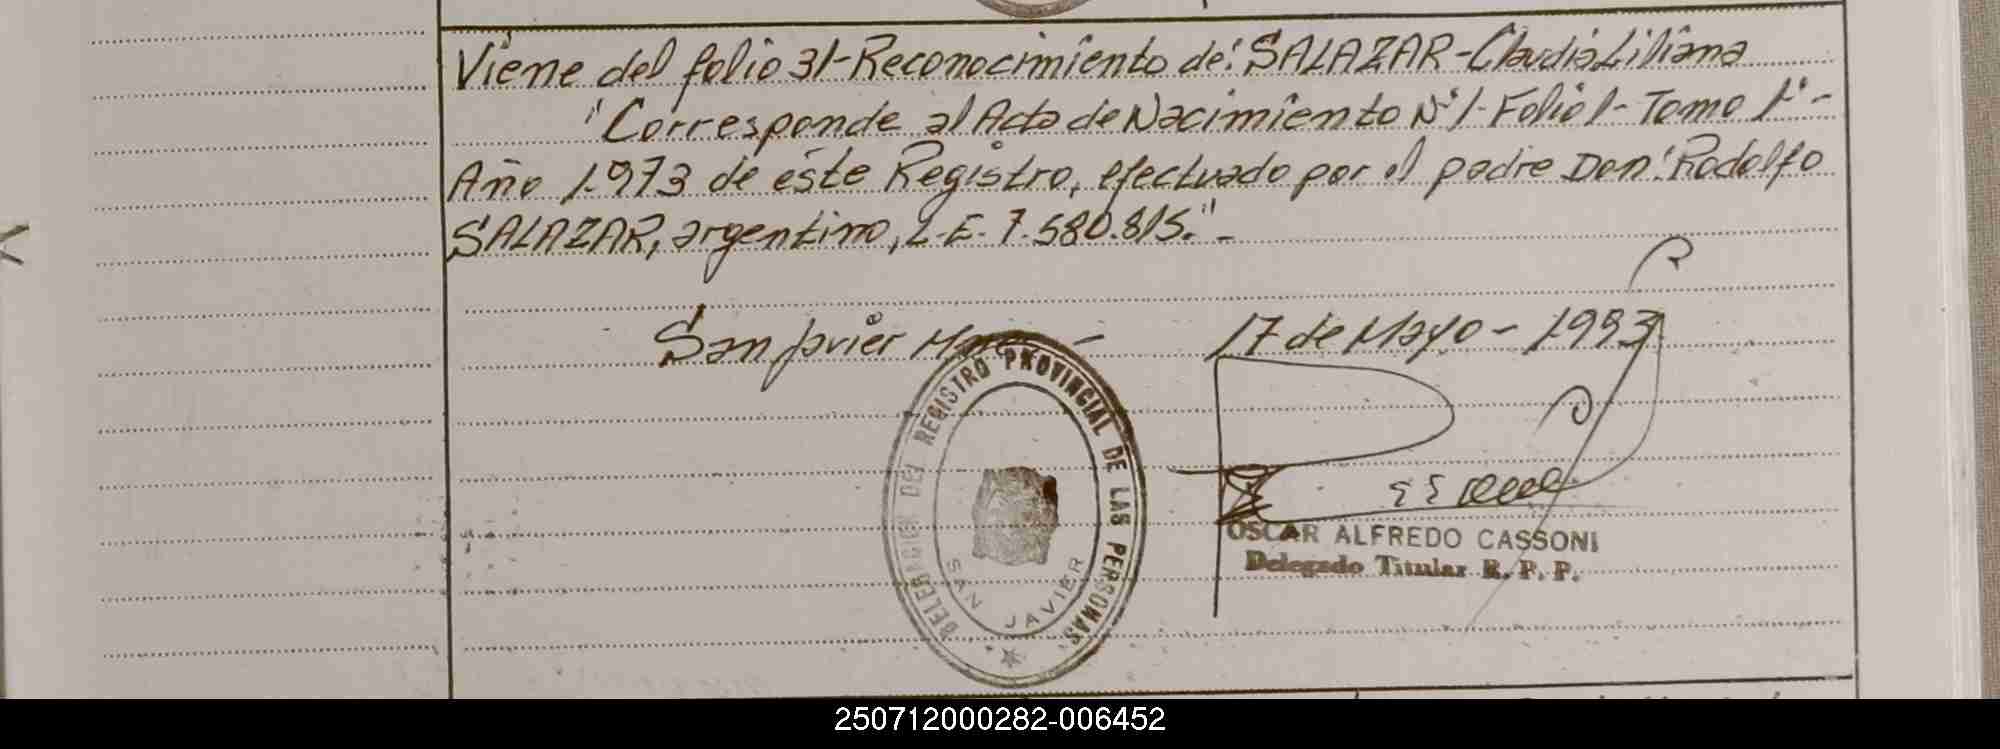 Viene del folio 31-Reconocimiento de: SALAZAR-Claudia Liliana
"Corresponde al Acta de Nacimiento Nº 1-Folio 1- Tomo 1º-
Año 1.973 de éste Registro, efectuado por el padre Don: Rodolfo
SALAZAR, argentino, L.E. 7.580.815."-
San Javier - 17 de Mayo - 1993
DELEGACION DEL REGISTRO PROVINCIAL DE LAS PERSONAS
SAN JAVIER
OSCAR ALFREDO CASSONI
Delegado Titular R. P. P.
250712000282-006452